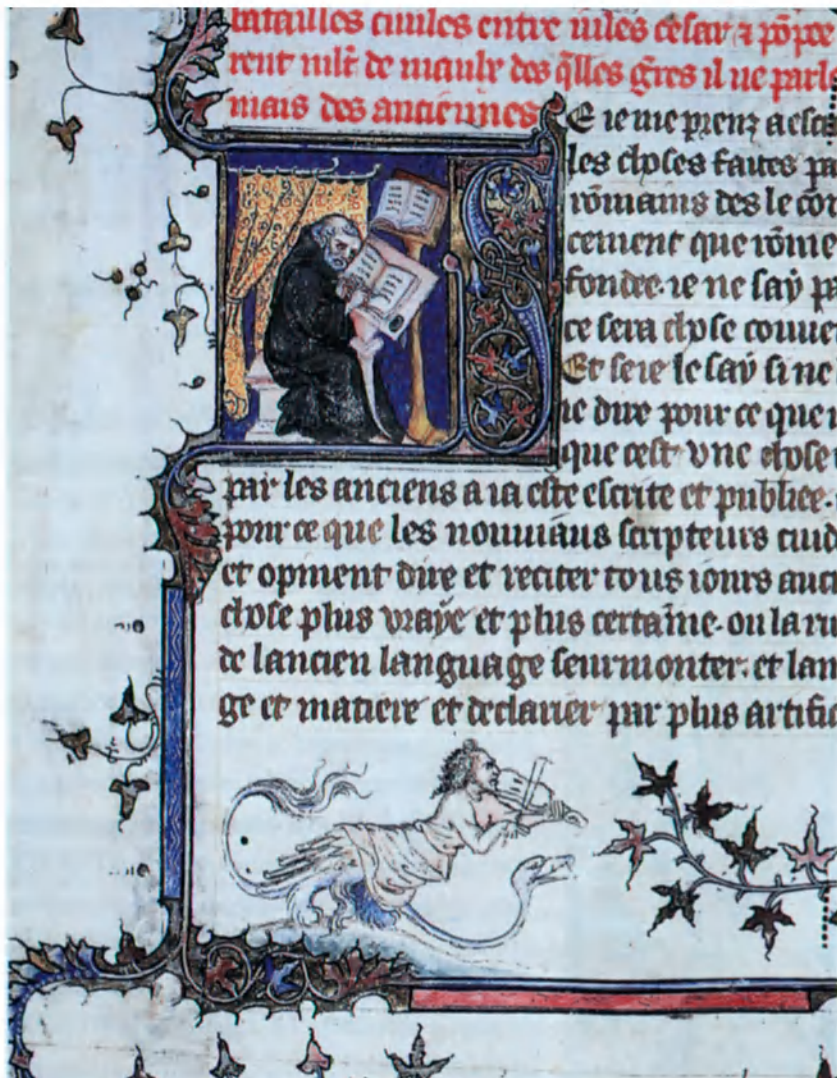 batailles ciuiles entre iules cesar ⁊ põpee
rent mlt̃ de maulx des q̃lles g̃res il ne parle
mais des anciennes
SE ie me prenz a escri
les choses faites pa
rõmains des le cõm
cement que rõme
fondee. ie ne say p
ce sera chose conue
Et se ie le say si ne
ie dire pour ce que
que cest vne chose
par les anciens a ia este escrite et publiee.
pour ce que les nouuiaus scripteurs cuid
et opinent dire et reciter tous iours auc
chose plus vraye et plus certaine. ou la ru
de lancien language seurmonter. et lan
ge et matiere et declairer par plus artifi